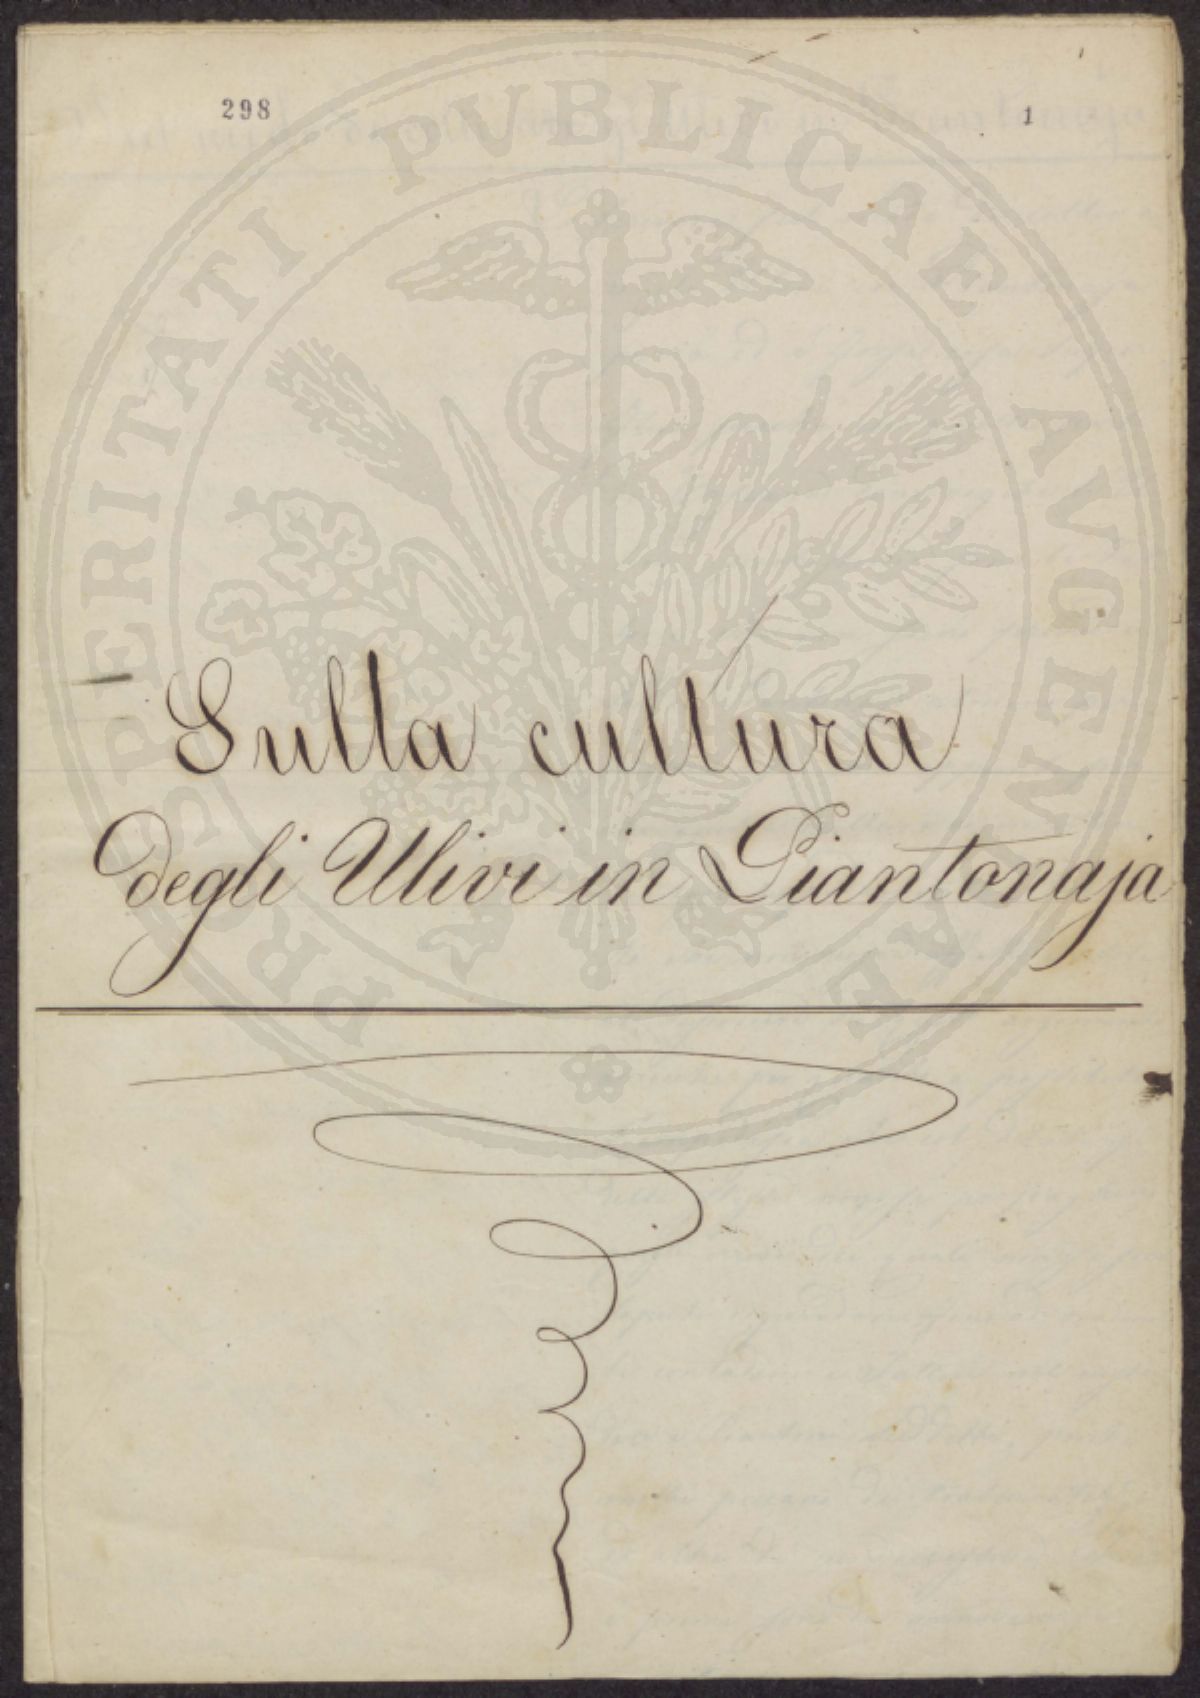 298 1
PROSPERITATI PVBLICAE AVGENDAE
Sulla cultura
degli Ulivi in Piantonaja